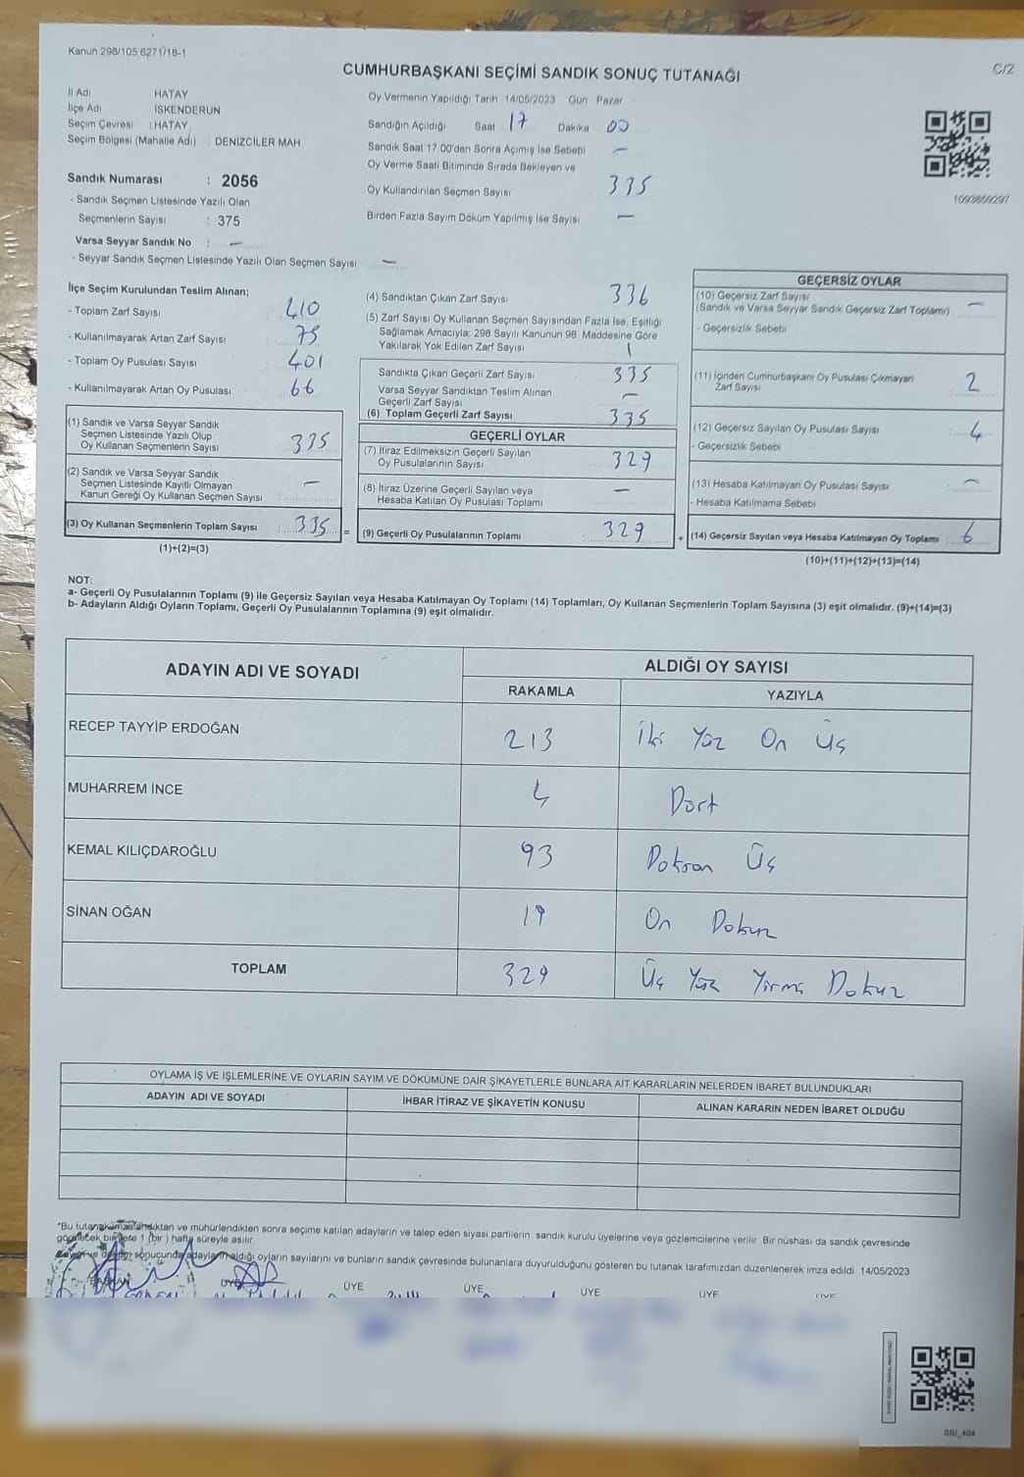 Kanun 298/105 6271/18-1
C/2
CUMHURBAŞKANI SEÇİMİ SANDIK SONUÇ TUTANAĞI
İl Adı HATAY
İlçe Adı İSKENDERUN
Seçim Çevresi : HATAY
Seçim Bölgesi (Mahalle Adı) : DENİZCİLER MAH
Sandık Numarası : 2056
- Sandık Seçmen Listesinde Yazılı Olan
Seçmenlerin Sayısı : 375
Varsa Seyyar Sandık No : —
- Seyyar Sandık Seçmen Listesinde Yazılı Olan Seçmen Sayısı —
Oy Vermenin Yapıldığı Tarih 14/05/2023 Gün Pazar
Sandığın Açıldığı Saat 17 Dakika 00
Sandık Saat 17.00'dan Sonra Açımış İse Sebebi —
Oy Verme Saati Bitiminde Sırada Bekleyen ve
Oy Kullandırılan Seçmen Sayısı 335
Birden Fazla Sayım Döküm Yapılmış İse Sayısı —
1093859297
İlçe Seçim Kurulundan Teslim Alınan;
- Toplam Zarf Sayısı 410
- Kullanılmayarak Artan Zarf Sayısı 75
- Toplam Oy Pusulası Sayısı 401
- Kullanılmayarak Artan Oy Pusulası 66
(1) Sandık ve Varsa Seyyar Sandık
Seçmen Listesinde Yazılı Olup
Oy Kullanan Seçmenlerin Sayısı 335
(2) Sandık ve Varsa Seyyar Sandık
Seçmen Listesinde Kayıtlı Olmayan
Kanun Gereği Oy Kullanan Seçmen Sayısı —
(3) Oy Kullanan Seçmenlerin Toplam Sayısı 335 =
(1)+(2)=(3)
(4) Sandıktan Çıkan Zarf Sayısı 336
(5) Zarf Sayısı Oy Kullanan Seçmen Sayısından Fazla İse, Eşitliği
Sağlamak Amacıyla; 298 Sayılı Kanunun 98. Maddesine Göre
Yakılarak Yok Edilen Zarf Sayısı 1
Sandıkta Çıkan Geçerli Zarf Sayısı 335
Varsa Seyyar Sandıktan Teslim Alınan
Geçerli Zarf Sayısı —
(6) Toplam Geçerli Zarf Sayısı 335
GEÇERLİ OYLAR
(7) İtiraz Edilmeksizin Geçerli Sayılan
Oy Pusulalarının Sayısı 329
(8) İtiraz Üzerine Geçerli Sayılan veya
Hesaba Katılan Oy Pusulası Toplamı —
(9) Geçerli Oy Pusulalarının Toplamı 329 +
GEÇERSİZ OYLAR
(10) Geçersiz Zarf Sayısı
(Sandık ve Varsa Seyyar Sandık Geçersiz Zarf Toplamı) —
- Geçersizlik Sebebi
(11) İçinden Cumhurbaşkanı Oy Pusulası Çıkmayan
Zarf Sayısı 2
(12) Geçersiz Sayılan Oy Pusulası Sayısı 4
- Geçersizlik Sebebi
(13) Hesaba Katılmayan Oy Pusulası Sayısı —
- Hesaba Katılmama Sebebi
(14) Geçersiz Sayılan veya Hesaba Katılmayan Oy Toplamı 6
(10)+(11)+(12)+(13)=(14)
NOT:
a- Geçerli Oy Pusulalarının Toplamı (9) ile Geçersiz Sayılan veya Hesaba Katılmayan Oy Toplamı (14) Toplamları, Oy Kullanan Seçmenlerin Toplam Sayısına (3) eşit olmalıdır. (9)+(14)=(3)
b- Adayların Aldığı Oyların Toplamı, Geçerli Oy Pusulalarının Toplamına (9) eşit olmalıdır.
ADAYIN ADI VE SOYADI ALDIĞI OY SAYISI
RAKAMLA YAZIYLA
RECEP TAYYİP ERDOĞAN 213 İki Yüz On Üç
MUHARREM İNCE 4 Dört
KEMAL KILIÇDAROĞLU 93 Doksan Üç
SİNAN OĞAN 19 On Dokuz
TOPLAM 329 Üç Yüz Yirmi Dokuz
OYLAMA İŞ VE İŞLEMLERİNE VE OYLARIN SAYIM VE DÖKÜMÜNE DAİR ŞİKAYETLERLE BUNLARA AİT KARARLARIN NELERDEN İBARET BULUNDUKLARI
ADAYIN ADI VE SOYADI İHBAR İTİRAZ VE ŞİKAYETİN KONUSU ALINAN KARARIN NEDEN İBARET OLDUĞU
ve mühürlendikten sonra seçime katılan adayların ve talep eden siyasi partilerin sandık kurulu üyelerine veya gözlemcilerine verilir. Bir nüshası da sandık çevresinde
1 (bir) hafta süreyle asılır.
aldığı oyların sayılarını ve bunların sandık çevresinde bulunanlara duyurulduğunu gösteren bu tutanak tarafımızdan düzenlenerek imza edildi. 14/05/2023
BAŞKAN ÜYE ÜYE ÜYE ÜYE ÜYE